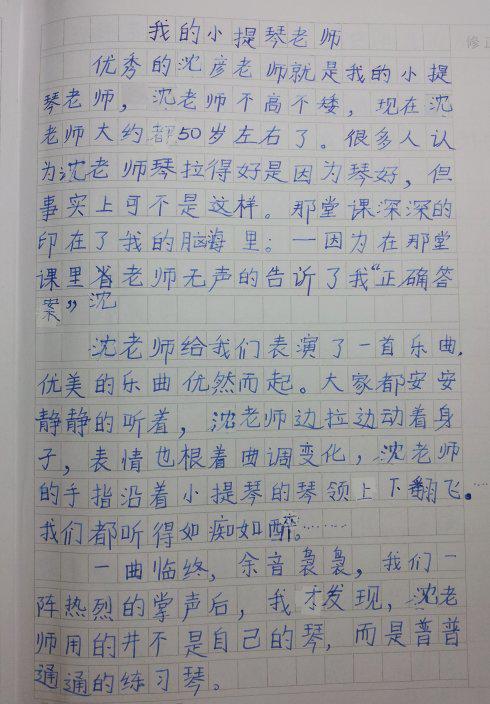 我的小提琴老师
优秀的沈彦老师就是我的小提
琴老师，沈老师不高不矮，现在沈
老师大约都50岁左右了。很多人认
为沈老师琴拉得好是因为琴好，但
事实上可不是这样。那堂课深深的
印在了我的脑海里：—因为在那堂
课里沈老师无声的告诉了我“正确答
案”沈
沈老师给我们表演了一首乐曲，
优美的乐曲优然而起。大家都安安
静静的听着，沈老师边拉边动着身
子，表情也根着曲调变化，沈老师
的手指沿着小提琴的琴领上下翻飞。…
我们都听得如痴如醉。……
一曲临终，余音袅袅，我们一
阵热烈的掌声后，我才发现，沈老
师用的并不是自己的琴，而是普普
通通的练习琴。
修正